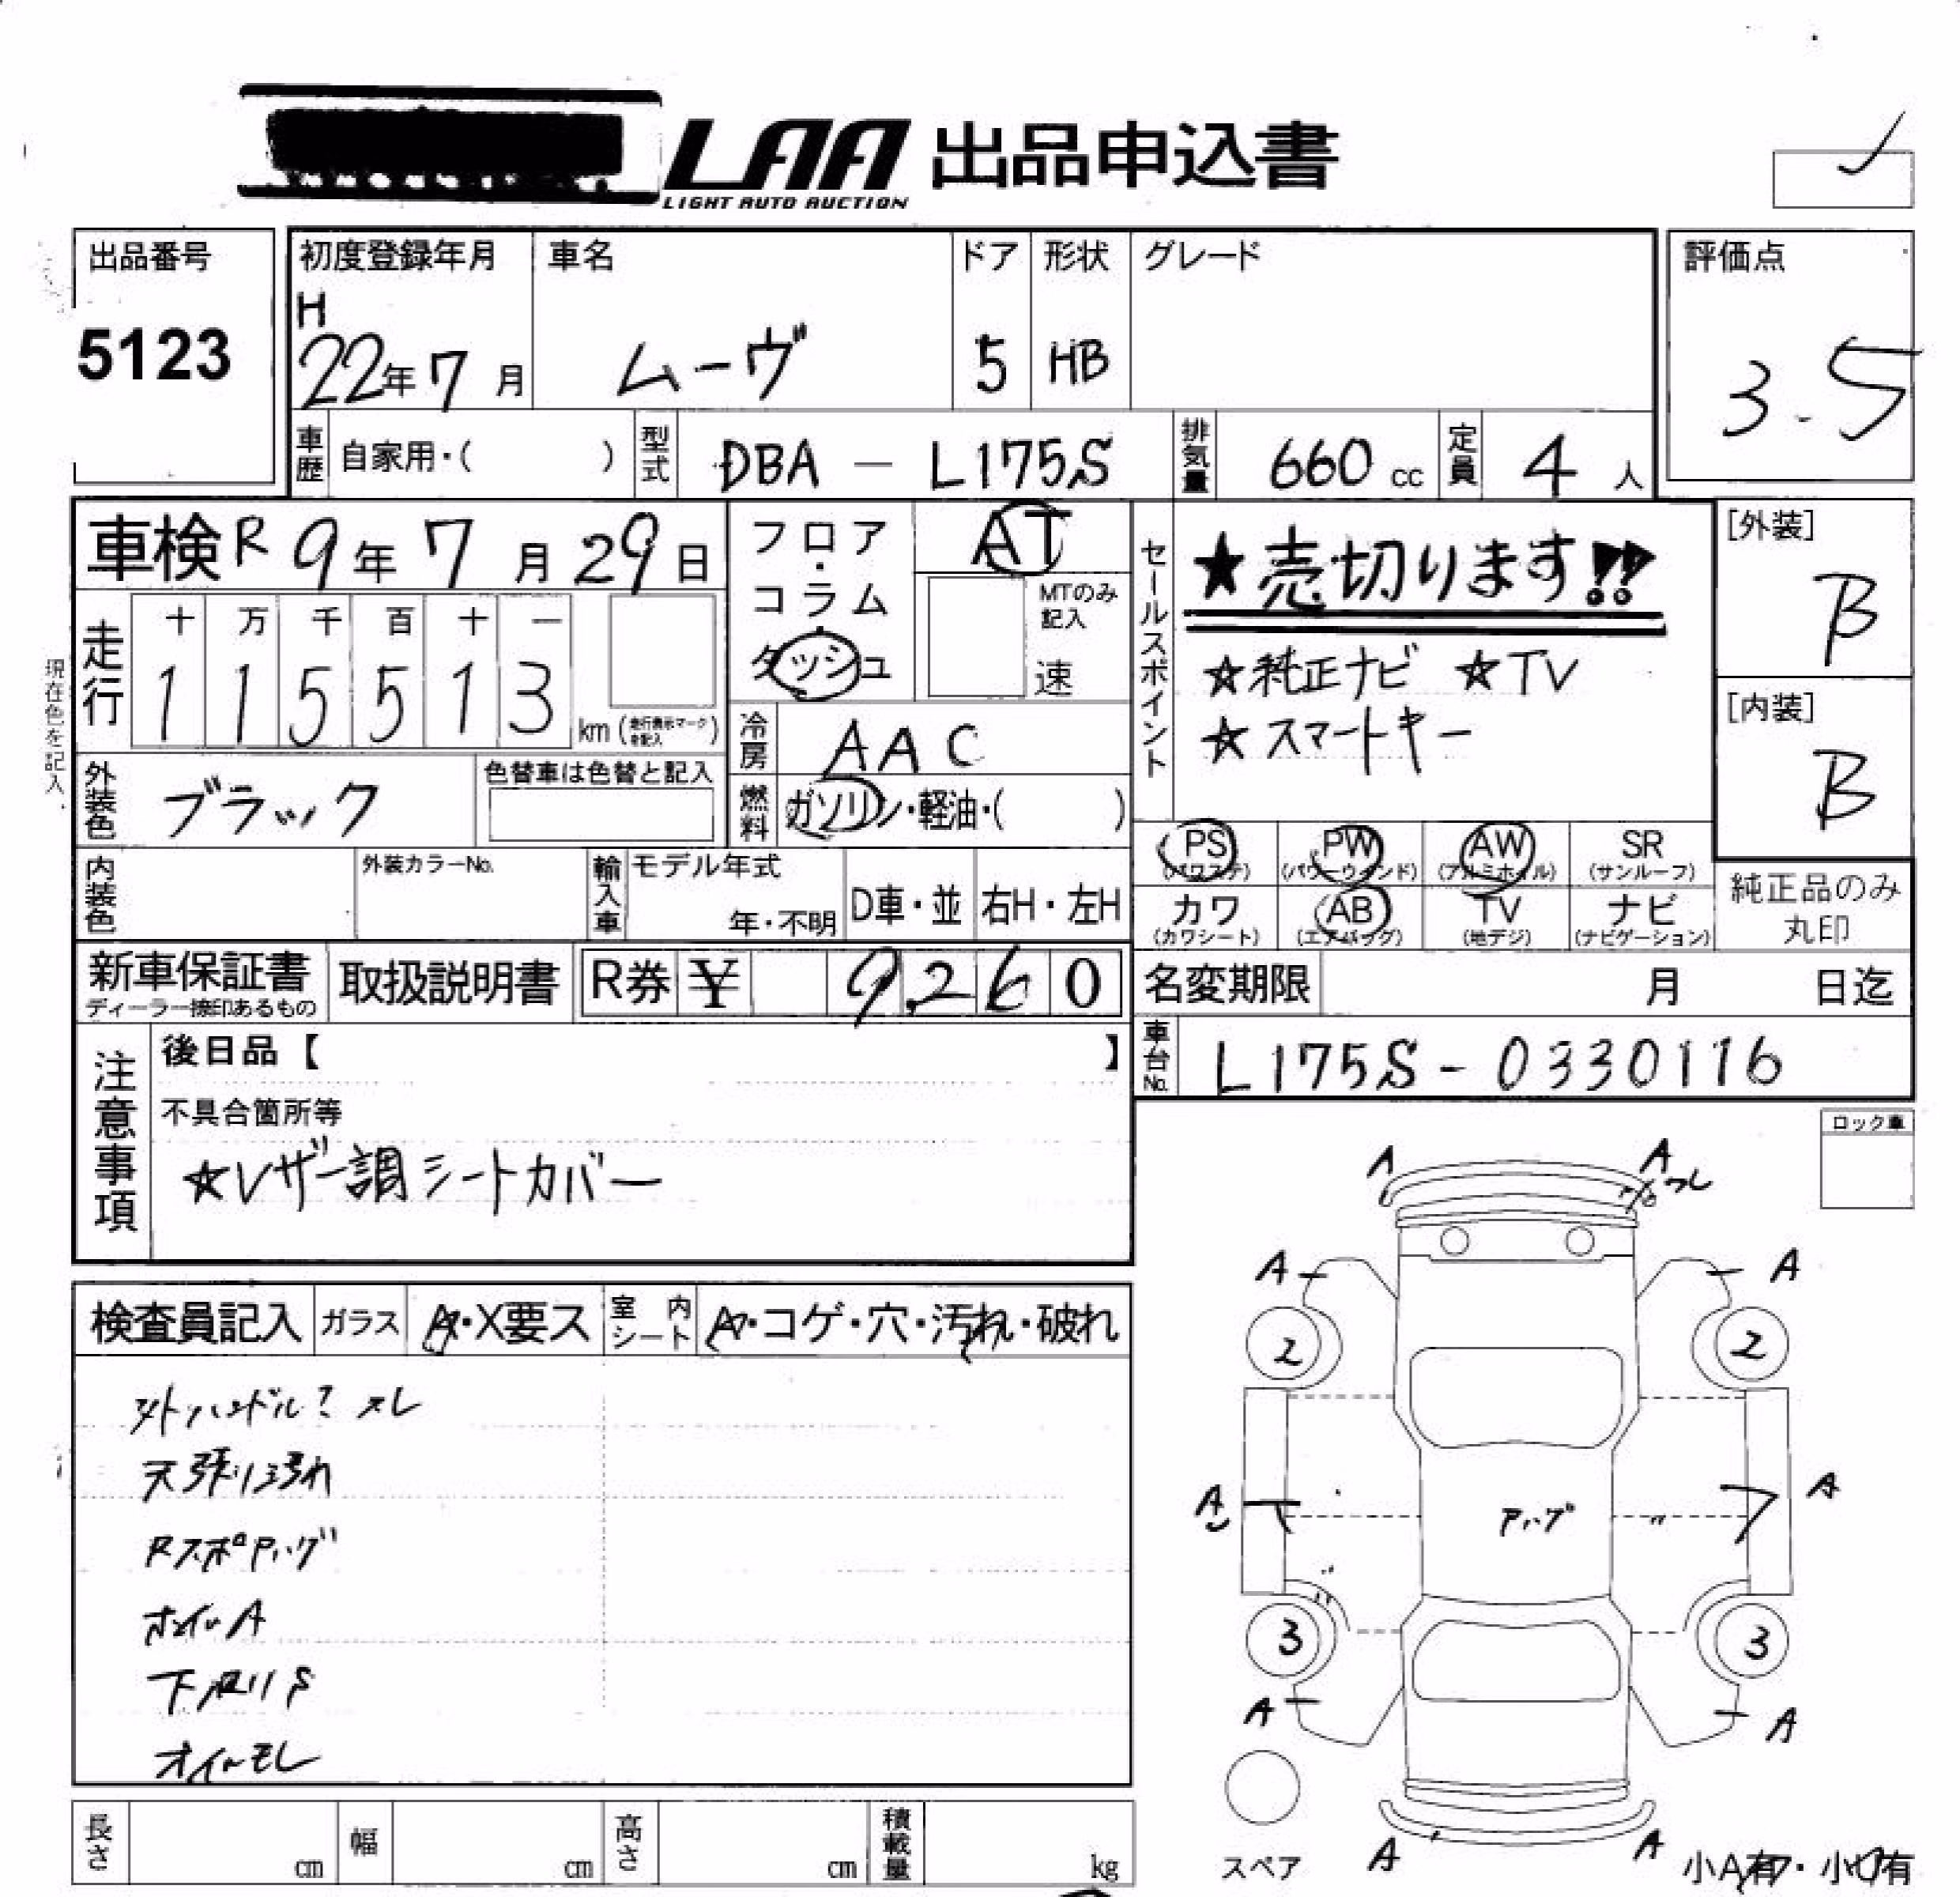 LAA 出品申込書
LIGHT AUTO AUCTION
出品番号
5123
初度登録年月
H
22年 7月
車名
ムーヴ
ドア
5
形状
HB
グレード
評価点
3.5
車歴 自家用・( )
型式 DBA - L175S
排気量 660 cc
定員 4 人
車検 R 9年 7月 29日
走行
十 万 千 百 十 一
1 1 5 5 1 3 km (走行表示マークを記入)
現在色を記入
フロア・コラム・ダッシュ
AT
MTのみ記入
速
冷房 AAC
燃料 ガソリン・軽油・( )
セールスポイント
★売切ります!!
☆純正ナビ ☆TV
☆スマートキー
[外装]
B
[内装]
B
外装色 ブラック
色替車は色替と記入
内装色
外装カラーNo.
輸入車
モデル年式
年・不明
D車・並
右H・左H
PS (パワステ)
PW (パワーウインド)
AW (アルミホイル)
SR (サンルーフ)
カワ (カワシート)
AB (エアバッグ)
TV (地デジ)
ナビ (ナビゲーション)
純正品のみ
丸印
新車保証書
ディーラー捺印あるもの
取扱説明書
R券 ¥ 9,260
名変期限 月 日迄
車台No. L175S-0330116
注意事項
後日品【 】
不具合箇所等
☆レザー調シートカバー
ロック車
検査員記入
ガラス A・X要ス
室内シート A・コゲ・穴・汚れ・破れ
外ハンドル? スレ
天張り汚れ
RスポPハゲ
ホイルA
下廻りS
オイルモレ
A
A
ワレ
A
A
2
2
A
Pハゲ
〃
A
3
3
A
A
スペア
A
A
小A有・小U有
長さ cm
幅 cm
高さ cm
積載量 kg